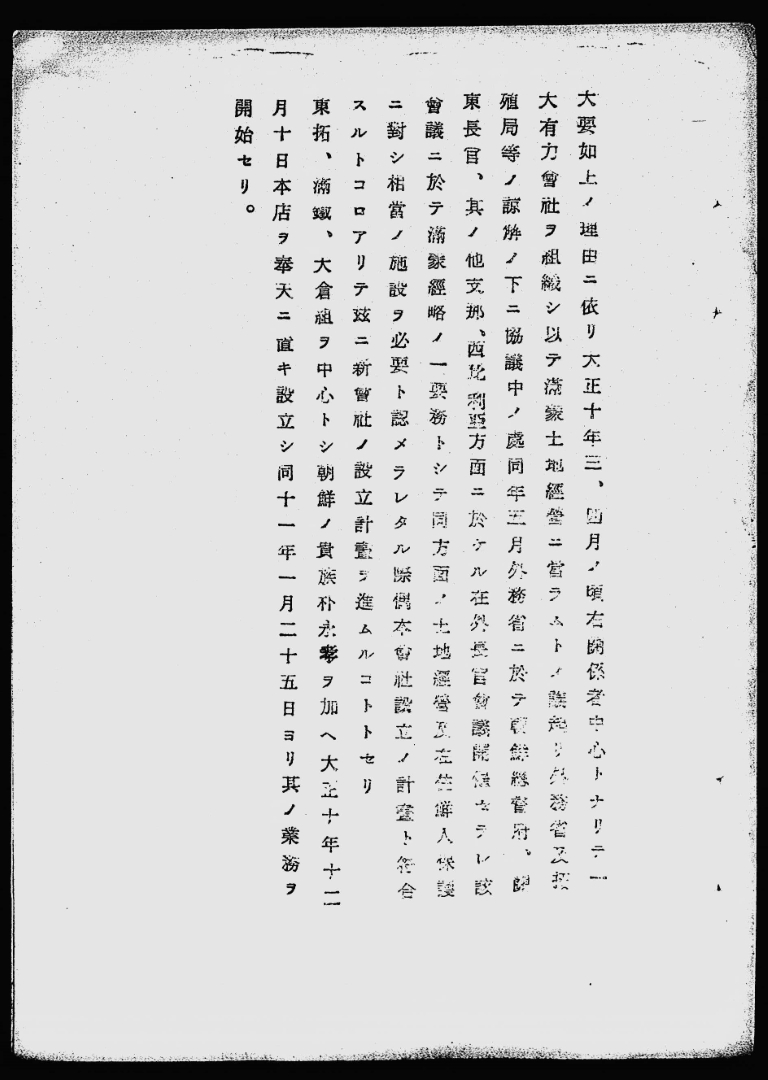 大要如上ノ理由ニ依リ大正十年三、四月ノ頃右關係者中心トナリテ一
大有力會社ヲ組織シ以テ滿蒙土地經營ニ當ラムトノ議起リ外務省及拓
殖局等ノ諒解ノ下ニ協議中ノ處同年五月外務省ニ於テ朝鮮總督府、關
東長官、其ノ他支那、西比利亞方面ニ於ケル在外長官會議開催セラレ該
會議ニ於テ滿蒙經略ノ一要務トシテ同方面ノ土地經營及在住鮮人保護
ニ對シ相當ノ施設ヲ必要ト認メラレタル際偶本會社設立ノ計畫ト符合
スルトコロアリテ玆ニ新會社ノ設立計畫ヲ進ムルコトトセリ
東拓、滿鐵、大倉組ヲ中心トシ朝鮮ノ貴族朴泳孝ヲ加ヘ大正十年十二
月十日本店ヲ奉天ニ置キ設立シ同十一年一月二十五日ヨリ其ノ業務ヲ
開始セリ。